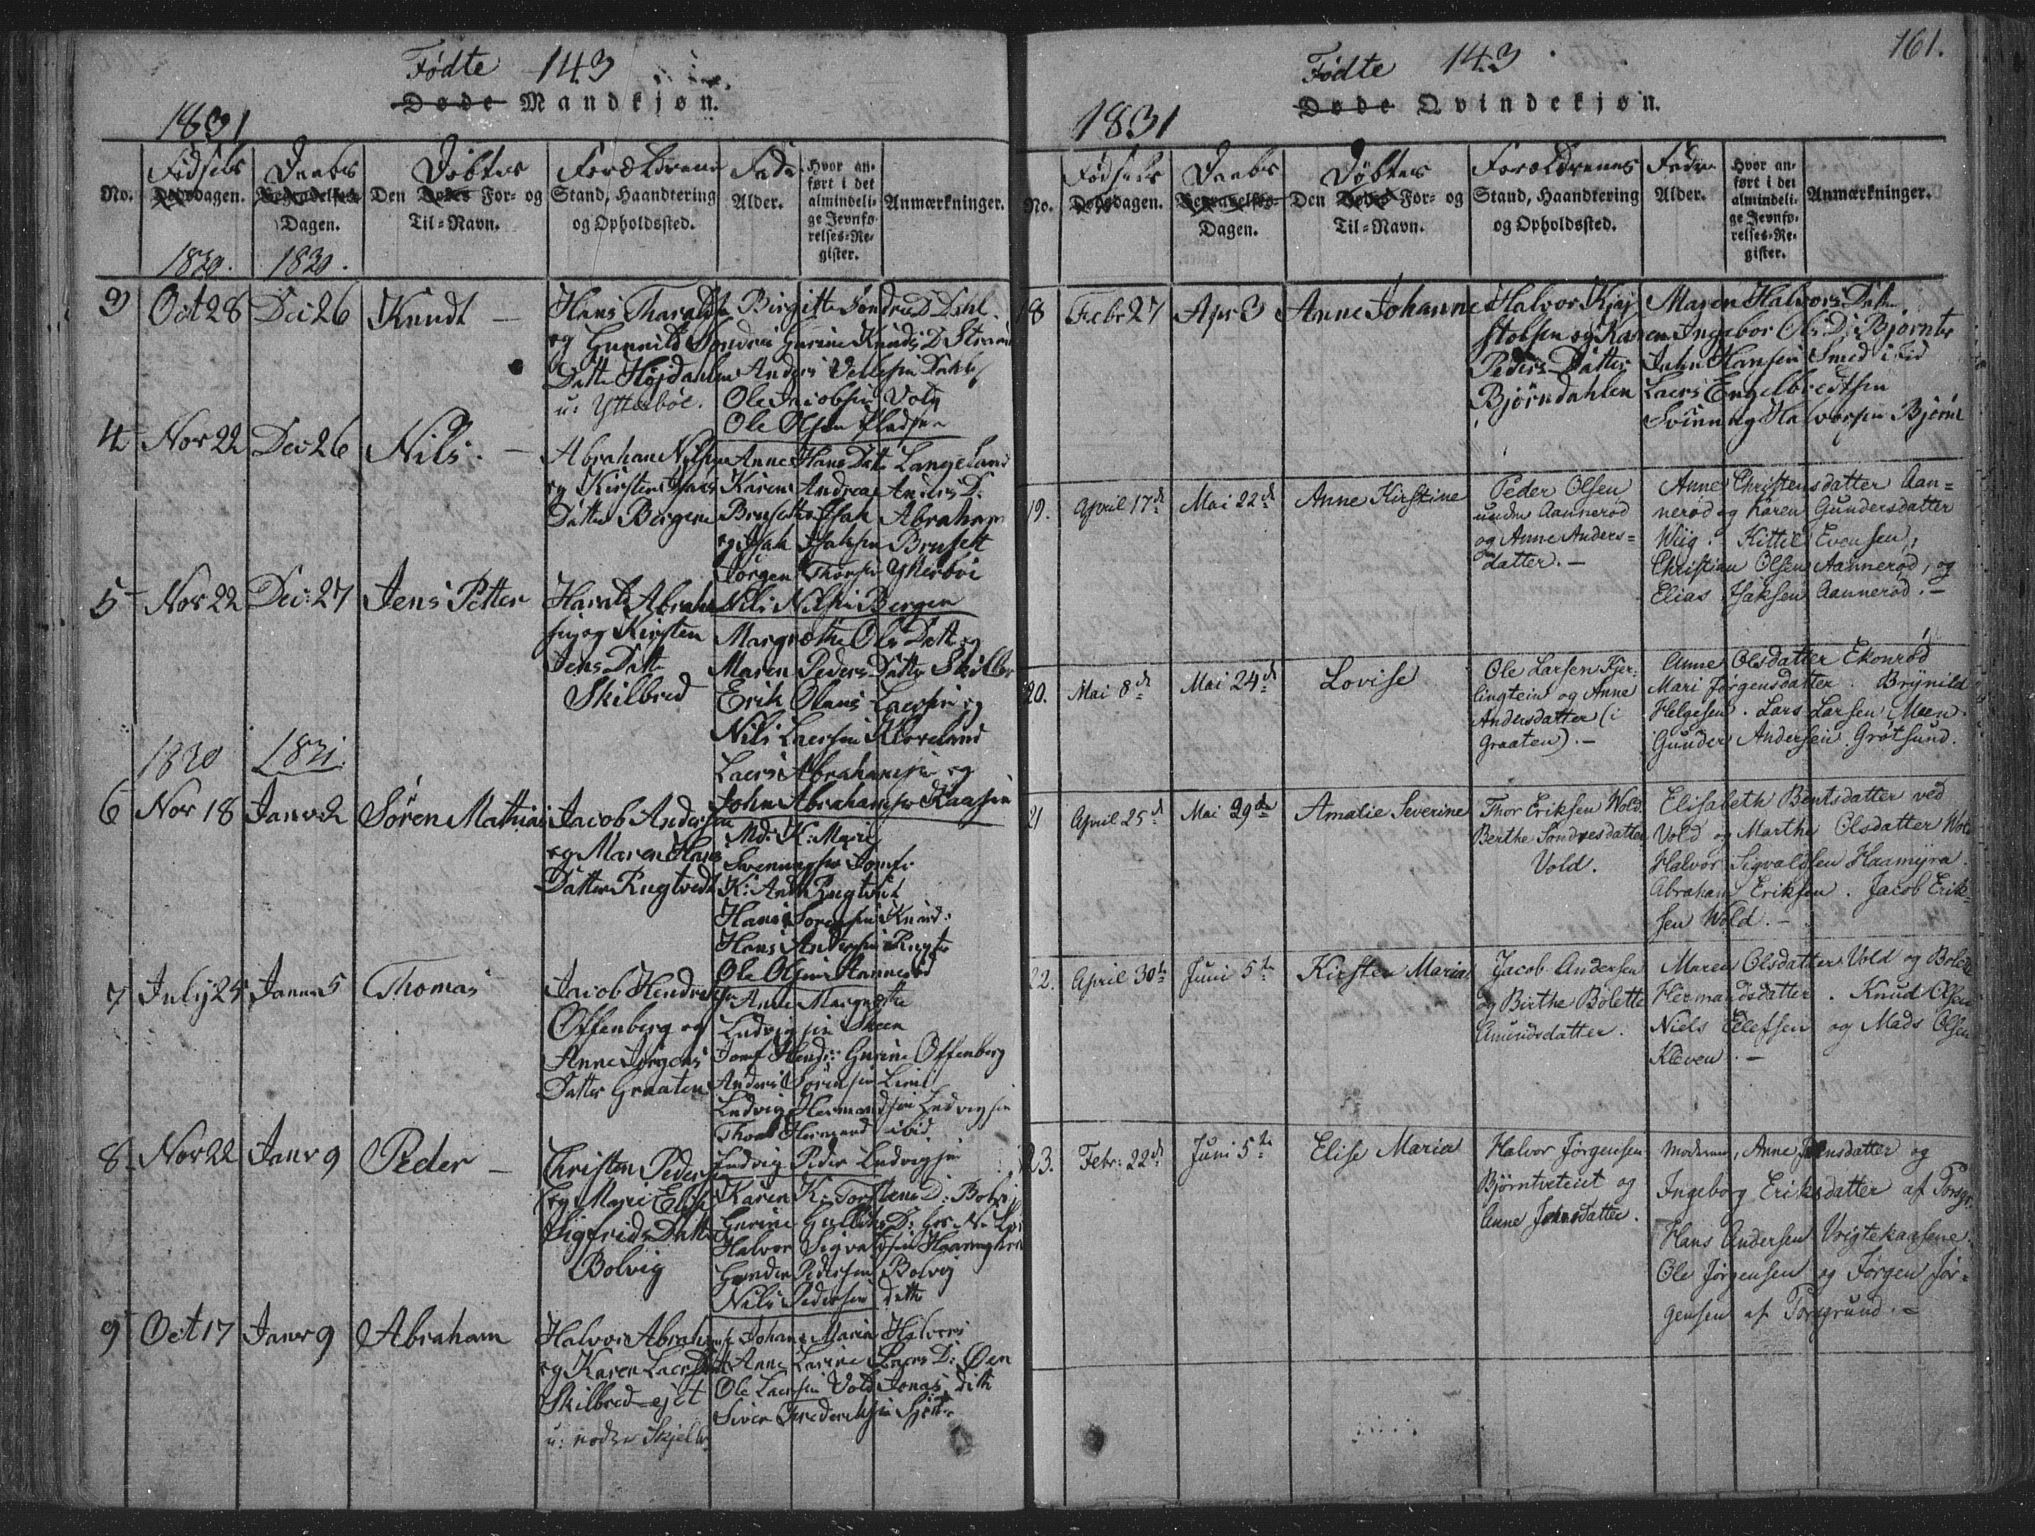 Fødte 143
Døde Mandkjøn.
1831
Fødsels
Daabs
Døbtes
Forældrene
Fadr
No.
Dødsdagen.
Begravelses-
Dagen.
Den Dødes For- og
Til-Navn.
Stand, Haandtering
og Opholdssted.
Alder.
Hvor an-
ført i det
almindeli-
ge Jevnfø-
relses-Re-
gister.
Anmærkninger.
1830. 1830.
3 Oct 28 Dec 26 Knudt —
Hans Tharalds
og Gunnild Sondre
Datter Højdahlen
u: Ytterbøe.
Birgitte Sondres D Dahl.
Gurine Knuds D
Anders Dahl
Ole Jacobsen Vold
Ole Olsen Pladsen
4 Nov 22 Dec 26 Nils. —
Abraham Nilsen
og Kirsten Hans
Datter Bergene
Anne Hans Datr Langeland
Karen Andrea Anders D:
Brusett Isak Abraham
og Isak Isaksen Brusett
Jörgen Thorsen Ytterböe
Nils Nilsen Bergen
5 Nov 22 Dec: 27 Jens Petter
Harald Abraham
sen og Kirsten
Jens Datter
Skilbred
Margrethe Ols Dattr og
Maren Peders Datter Skilbr
Erik Olaus Larsen og
Nils Larsen Kloveland
Lars Abrahamsen og
John Abrahamsen Kaasen
1830 1831.
6 Nov 18 Janv 2 Sören Mathias
Jacob Andersen
og Maren Hans
Datter Rugtvedt
Md: K: Marie
Svenningsen Jomf:
K: Anne Rugtvet
Hans Sörensen
Hans Andersen Rugtv
Ole Olsen Aannerød
7 July 25 Janv 5 Thomas
Jacob Hendrichsen
Offenberg og
Anne Jörgens
Datter Graaten
Anne Margrethe
Ludvigsen Skeen
Jomf Hendr: Gurine Offenberg
Anders Sörensen Lien
Ludvig Hermandsen Ludvigsen
Thor Hermand ibid
Ludvig Peder Ludvigsen
8 Nov 22 Janv 9 Peder —
Christen Peders
og Marie Elise
Sigfrids Datter
Bolvig
Karen K: Torstens D: Bolvig
Halvor Sigvaldsen
Gunder Pedersen Bolvig
Nils Pedersen ditto
9 Oct 17 Janv 9 Abraham
Halvor Abraham
og Karen Lars D
Skilbred ejet
u: nodre Skjelbr
Johane Marie Halvors
Anne Larine Lars D: Øen
Ole Larsen Vold Jonas ditto
Siver Frederichsen
Fødte 143
161.
Døde Qvindekjøn.
1831
Fødsels
Daabs
Døbtes
Forældrenes
Fadr
No.
Dødsdagen.
Begravelses-
Dagen.
Den Dødes For- og
Til-Navn.
Stand, Haandtering
og Opholdssted.
Alder.
Hvor an-
ført i det
almindeli-
ge Jevnfø-
relses-Re-
gister.
Anmærkninger.
18 Febr 27 Apr 3 Anne Johanne
Halvor Kri
stofsen og Karen
Peders Datter
Bjørndahlen
Maren Halvors Datr
Ingebor Ols D: Bjørnte
John Hansen Smed i Eid
Lars Engelbredtsen
Svenning Halvorsen Bjørnt
19. April 17d Mai 22d Anne Kirstine
Peder Olsen
under Aannerød
og Anne Anders-
datter. —
Anne Christensdatter Aan-
nerød og Karen Gundersdatter
Wiig. Kittil Evensen,
Christian Olsen Aannerød, og
Elias Isaksen Aannerød. —
20. Mai 8d Mai 24d Lovise
Ole Larsen Fjer-
lingtein og Anne
Andersdatter (i
Graaten). —
Anne Olsdatter Ekonrød
Mari Jørgensdatter. Brynild
Helgesen. Lars Larsen Meen.
Gunder Andersen Grøtsund.
21 April 25d Mai 29de Amalie Severine
Thor Eriksen Wold.
Berthe Sondresdatter
Vold.
Elisabeth Bentsdatter ved
Vold og Marthe Olsdatter Wold
Halvor Sigvaldsen Haamyra.
Abraham Eriksen. Jacob Erik-
sen Wold. —
22. April 30te Juni 5te Kirsten Maria
Jacob Andersen
og Birthe Bolette
Amundsdatter.
Maren Olsdatter Vold og Bolette
Hermandsdatter. Knud Olsen
Niels Ellefsen og Mads Olsen
Kleven. —
23. Febr: 22d Juni 5te Elise Maria
Halvor Jørgensen
Bjørntveteiet og
Anne Johnsdatter.
Moderen, Anne Jensdatter og
Ingeborg Eriksdatter af Porsgr.
Hans Andersen Vrigtekaasene.
Ole Jørgensen og Jørgen Jør-
gensen af Porsgrund. —